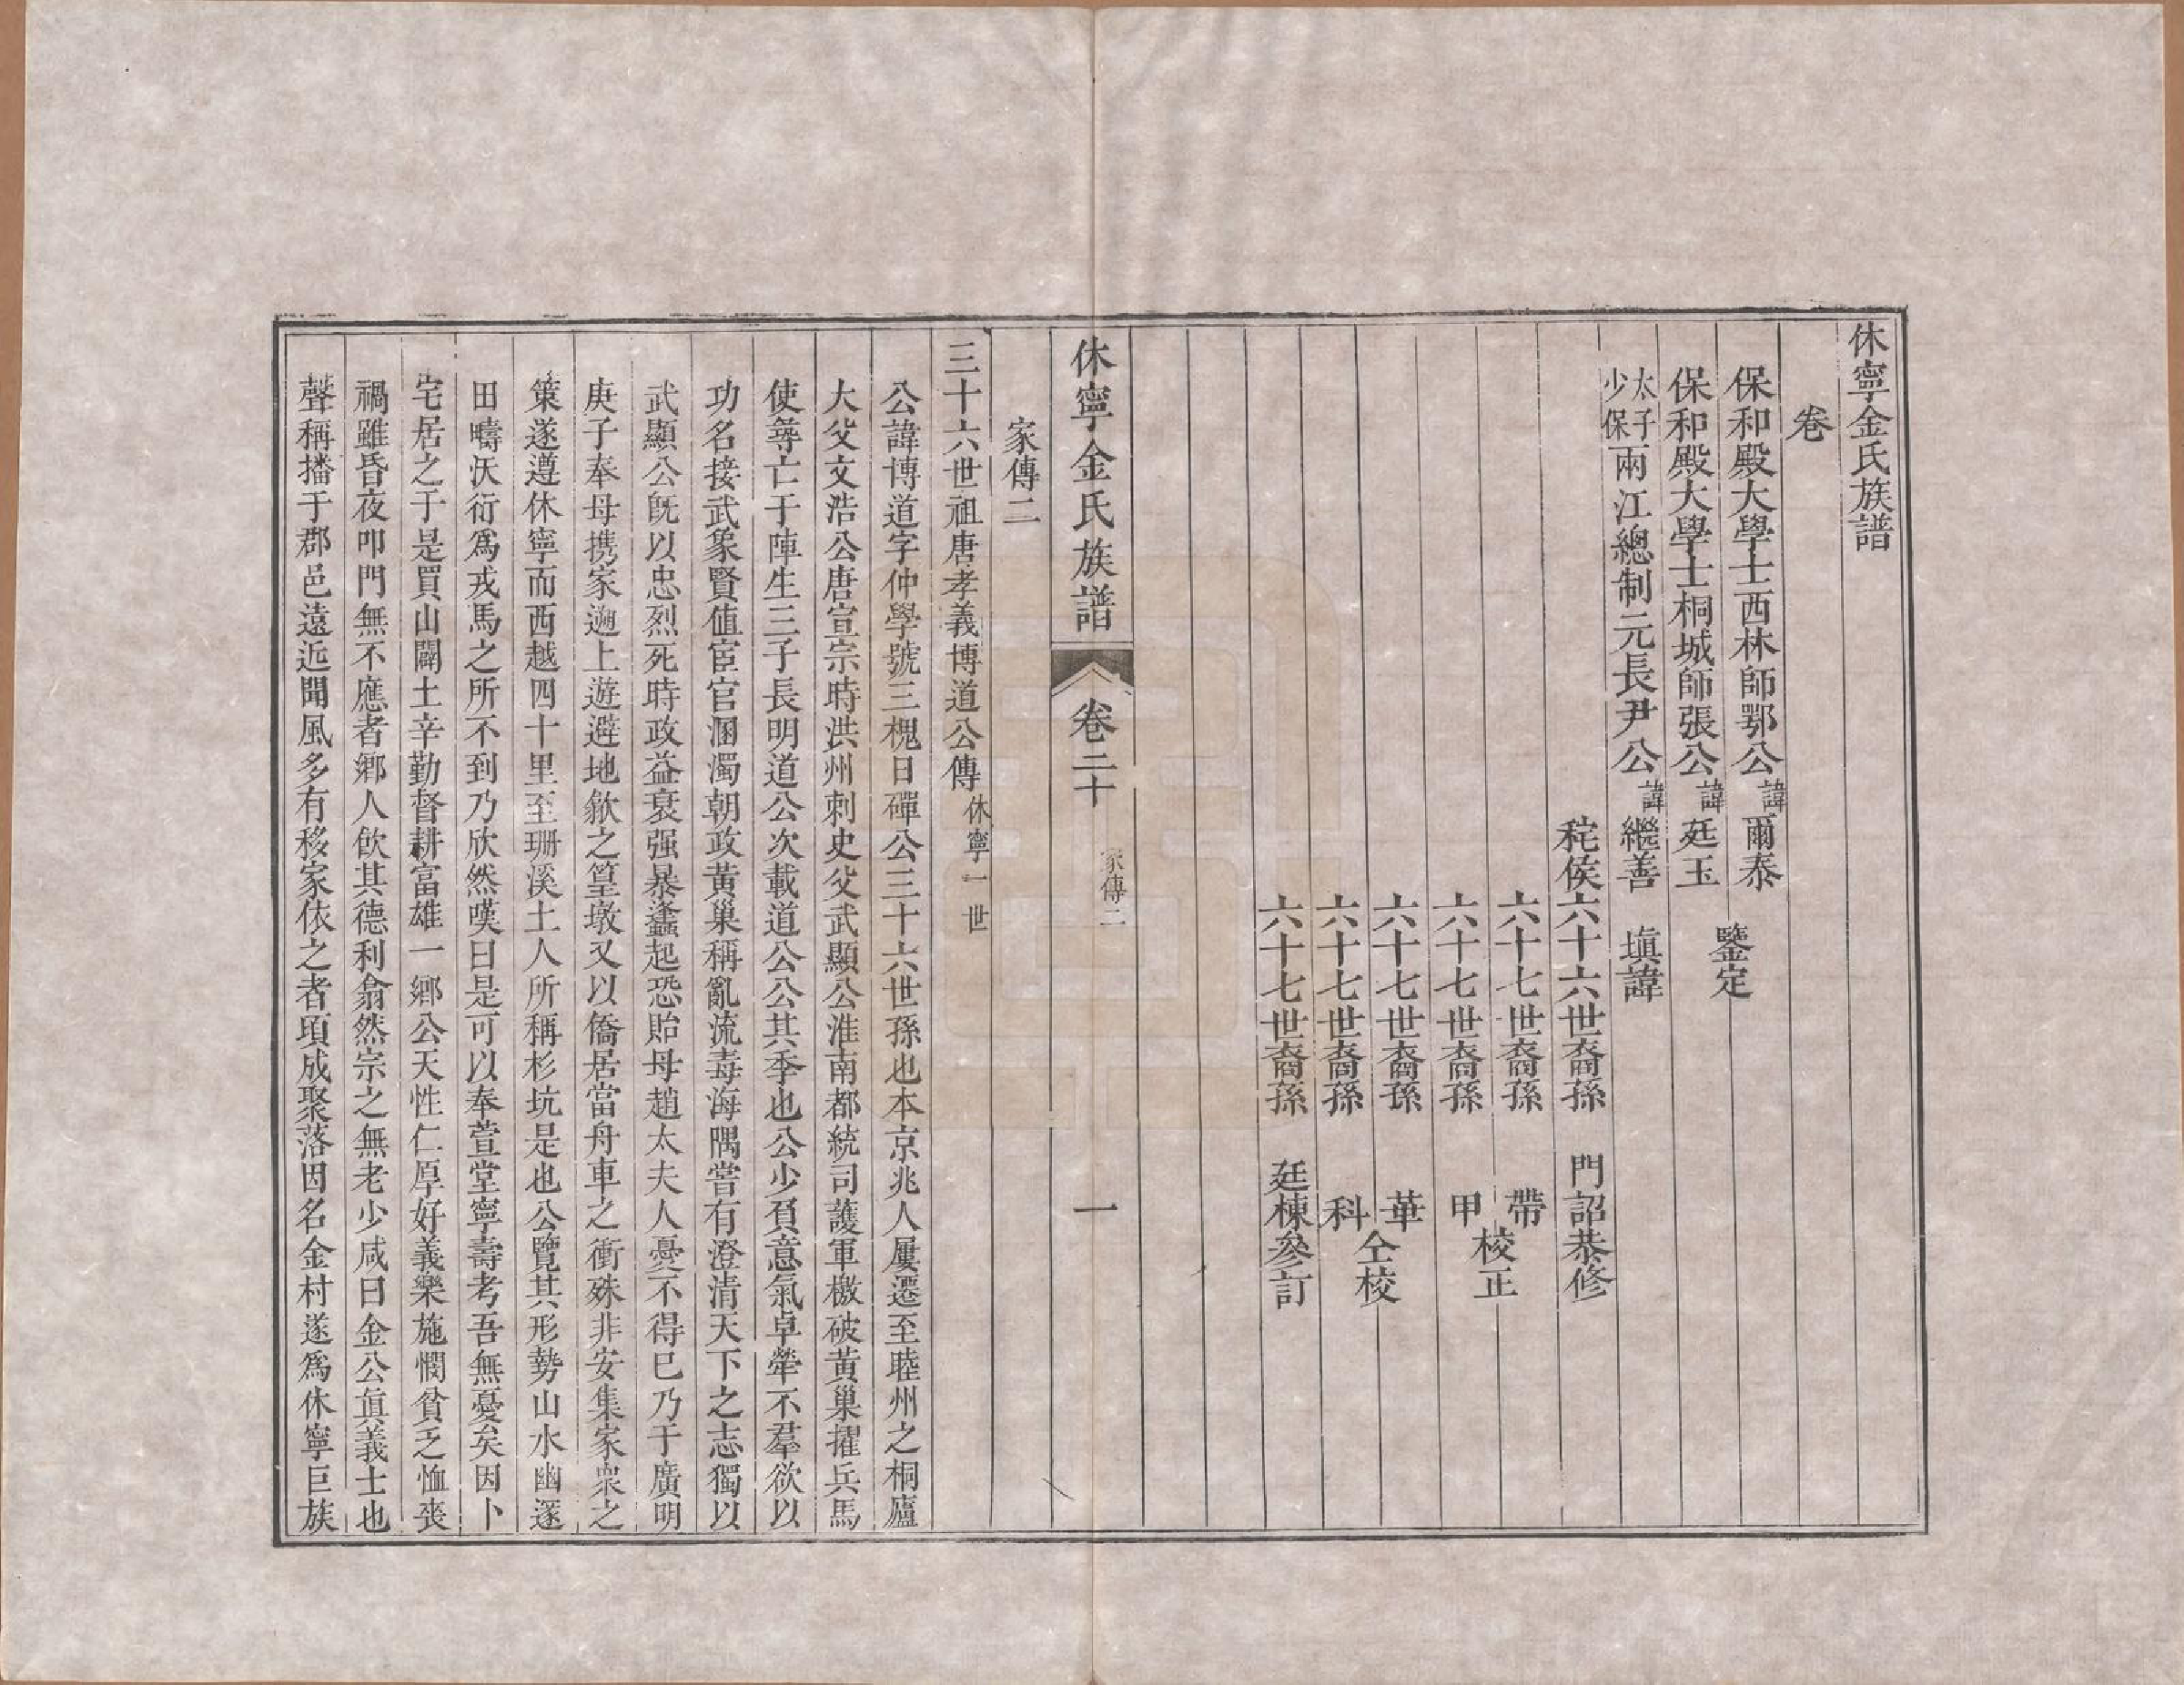 休寧金氏族譜
卷
保和殿大學士西林師鄂公諱爾泰
保和殿大學士桐城師張公諱廷玉
鑒定
太子少保兩江總制元長尹公諱繼善　塡諱
秺侯六十六世裔孫　門詔恭修
六十七世裔孫　帶
六十七世裔孫　甲
校正
六十七世裔孫　華
六十七世裔孫　科
仝校
六十七世裔孫　廷棟參訂
休寧金氏族譜　卷二十　家傳二　一
家傳二
三十六世祖唐孝義博道公傳休寧一世
公諱博道字仲學號三槐日磾公三十六世孫也本京兆人屢遷至睦州之桐廬
大父文浩公唐宣宗時洪州刺史父武顯公淮南都統司護軍檄破黃巢擢兵馬
使尋亡于陣生三子長明道公次載道公公其季也公少負意氣卓犖不羣欲以
功名接武象賢值宦官溷濁朝政黃巢稱亂流毒海隅嘗有澄清天下之志獨以
武顯公旣以忠烈死時政益衰强暴蠭起恐貽母趙太夫人憂不得已乃于廣明
庚子奉母携家遡上遊避地歙之篁墩又以僑居當舟車之衝殊非安集家衆之
策遂遵休寧而西越四十里至珊溪土人所稱杉坑是也公覽其形勢山水幽邃
田疇沃衍爲戎馬之所不到乃欣然嘆曰是可以奉萱堂寧壽考吾無憂矣因卜
宅居之于是買山闢土辛勤督耕富雄一鄉公天性仁厚好義樂施憫貧乏恤喪
禍雖昏夜叩門無不應者鄉人飮其德利翕然宗之無老少咸曰金公眞義士也
聲稱播于郡邑遠近聞風多有移家依之者頃成聚落因名金村遂爲休寧巨族